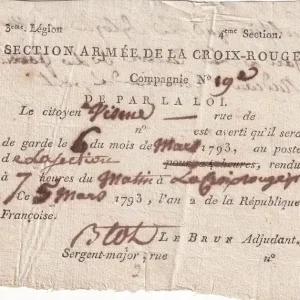 3eme. Légion 4eme Section.
SECTION ARMÉE DE LA CROIX-ROUGE
Compagnie No 19e
DE PAR LA LOI.
Le citoyen rue de
no est averti qu'il sera
de garde le 6 du mois de Mars 1793, au poste
de La Section pour 24 heures, rendu
à 7 heures du Matin à La Croix rouge
Ce 5 Mars 1793, l'an 2 de la République
Française.
LE BRUN Adjudant.
Sergent-major, rue no